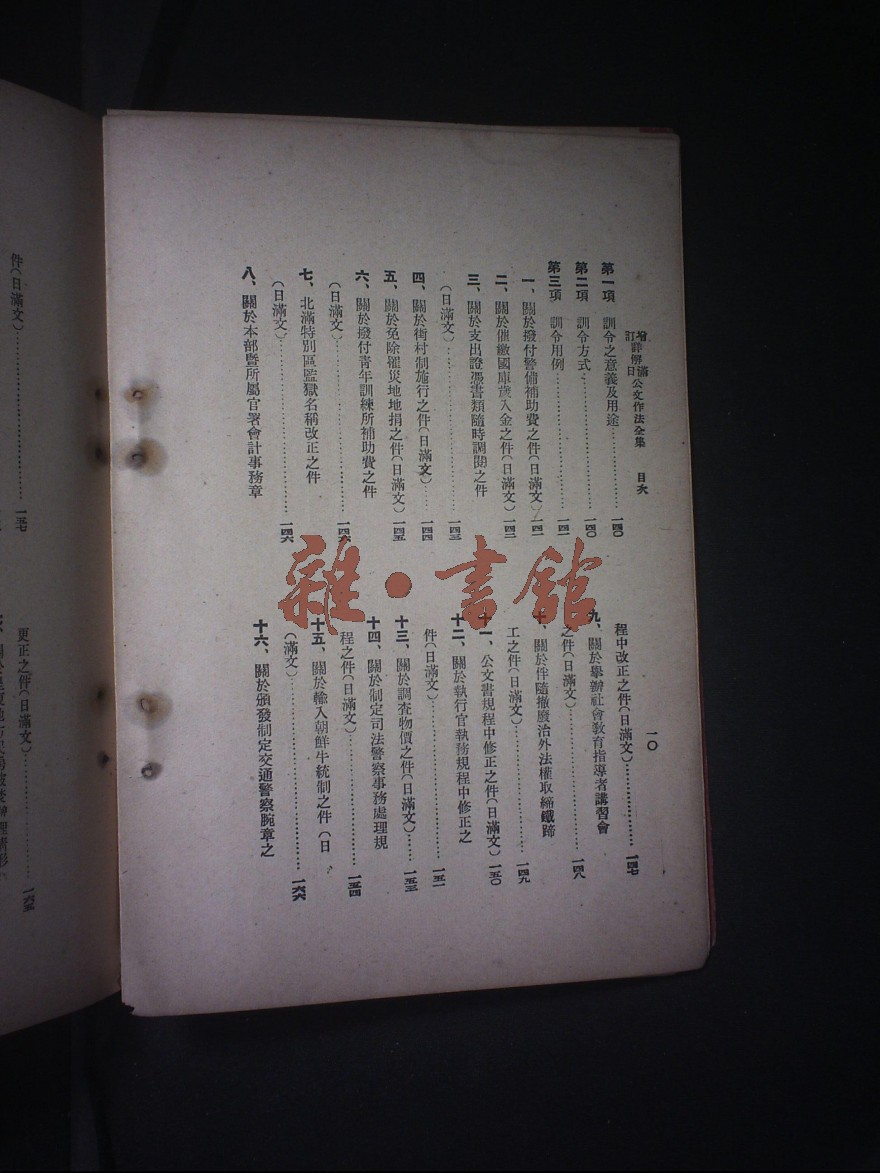 增訂詳解日滿公文作法全集 目次
一〇
第一項 訓令之意義及用途……一四〇
第二項 訓令方式……一四〇
第三項 訓令用例……一四一
一、關於撥付警備補助費之件(日滿文)一四一
二、關於催繳國庫歲入金之件(日滿文)一四二
三、關於支出證憑書類隨時調閱之件
(日滿文)……一四三
四、關於街村制施行之件(日滿文)……一四四
五、關於免除罹災地地捐之件(日滿文)一四五
六、關於撥付青年訓練所補助費之件
(日滿文)……一四六
七、北滿特別區監獄名稱改正之件
(日滿文)……一四六
八、關於本部暨所屬官署會計事務章
程中改正之件(日滿文)……一四七
九、關於舉辦社會教育指導者講習會
之件(日滿文)……一四八
十、關於伴隨撤廢治外法權取締鐵蹄
工之件(日滿文)……一四九
十一、公文書規程中修正之件(日滿文)一五〇
十二、關於執行官執務規程中修正之
件(日滿文)……一五一
十三、關於調查物價之件(日滿文)……一五三
十四、關於制定司法警察事務處理規
程之件(日滿文)……一五四
十五、關於輸入朝鮮牛統制之件(日
滿文)……一六六
十六、關於頒發制定交通警察腕章之
件(日滿文)……一五七
更正之件(日滿文)……一六五
雜·書館